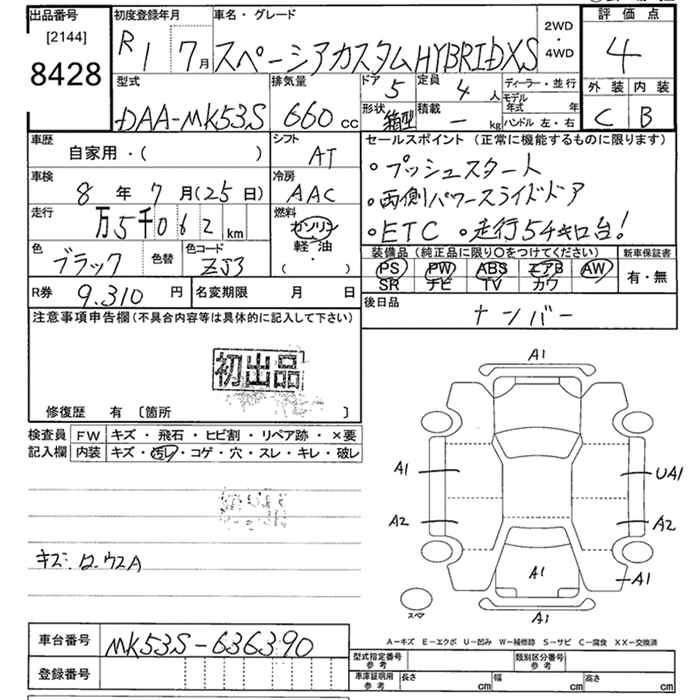 出品番号 初度登録年月 車名・グレード 2WD・4WD 評価点
[2144] R1 7月 スペーシアカスタムHYBRIDXS 4
8428
型式 排気量 ドア 定員 ディーラー・並行 外装 内装
DAA-MK53S 660cc 5 4人 モデル年式 年 C B
形状 箱型 積載 - kg ハンドル 左・右
車歴 シフト セールスポイント (正常に機能するものに限ります)
自家用・( ) AT
。プッシュスタート
車検 冷房
8年7月(25日) AAC
。両側パワースライドドア
走行 燃料
万5千062km ガソリン
。ETC 。走行5千キロ台!
軽油
・
色 色替 色コード
ブラック ZJ3
装備品 (純正品に限り○をつけてください) 新車保証書
PS PW ABS エアB AW 有・無
SR ナビ TV カワ
R券 9.310円 名変期限 月 日
後日品
ナンバー
注意事項申告欄(不具合内容等は具体的に記入して下さい)
初出品
修復歴 有 〔箇所 〕
検査員 FW キズ・飛石・ヒビ割・リペア跡・×要
記入欄 内装 キズ・汚レ・コゲ・穴・スレ・キレ・破レ
A1
A1 UA1
A2 A2
A1 A1
A1
スペア
キズ:ロッカスA
A-キズ E-エクボ U-凹み W-補修跡 S-サビ C-腐食 XX-交換済
車台番号 MK53S-636390
登録番号
型式指定番号 参考 類別区分番号 参考
車庫証明用 参考 長さ cm 幅 cm 高さ cm